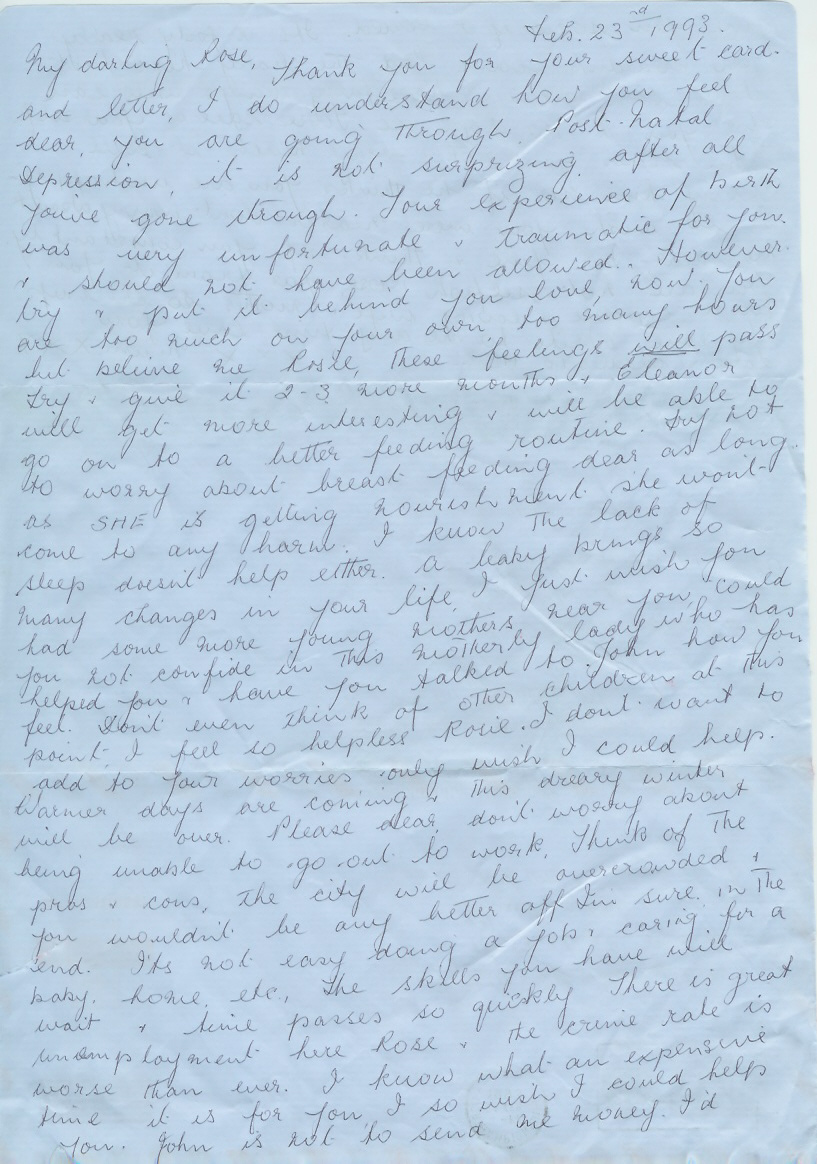 Feb. 23rd 1993.
My darling Rose, Thank you for your sweet card.
and letter, I do understand how you feel
dear, you are going through Post-Natal
Depression, it is not surprizing after all
You've gone through. Your experience of birth
was very unfortunate & traumatic for you.
& should not have been allowed. However
try & put it behind you love, now. You
are too much on your own, too many hours
but believe me Rosie, these feelings will pass
try & give it 2-3 more months & Eleanor
will get more interesting & will be able to
go on to a better feeding routine. Try not
to worry about breast feeding dear as long.
as SHE is getting nourishment she won't
come to any harm. I know the lack of
sleep doesn't help either. A baby brings so
many changes in your life, I just wish you
had some more young mothers near you, could
you not confide in this motherly lady who has
helped you & have you talked to John how you
feel. Don't even think of other children at this
point, I feel so helpless Rosie. I dont want to
add to your worries only wish I could help.
Warmer days are coming & this dreary winter
will be over. Please dear, don't worry about
being unable to go out to work, Think of the
pros & cons, the city will be overcrowded &
you wouldn't be any better off I'm sure in the
end. It's not easy doing a job & caring for a
baby, home, etc., the skills you have will
wait & time passes so quickly There is great
unemployment here Rose & the crime rate is
worse than ever. I know what an expensive
time it is for you, I so wish I could help
you. John is not to send me money. I'd